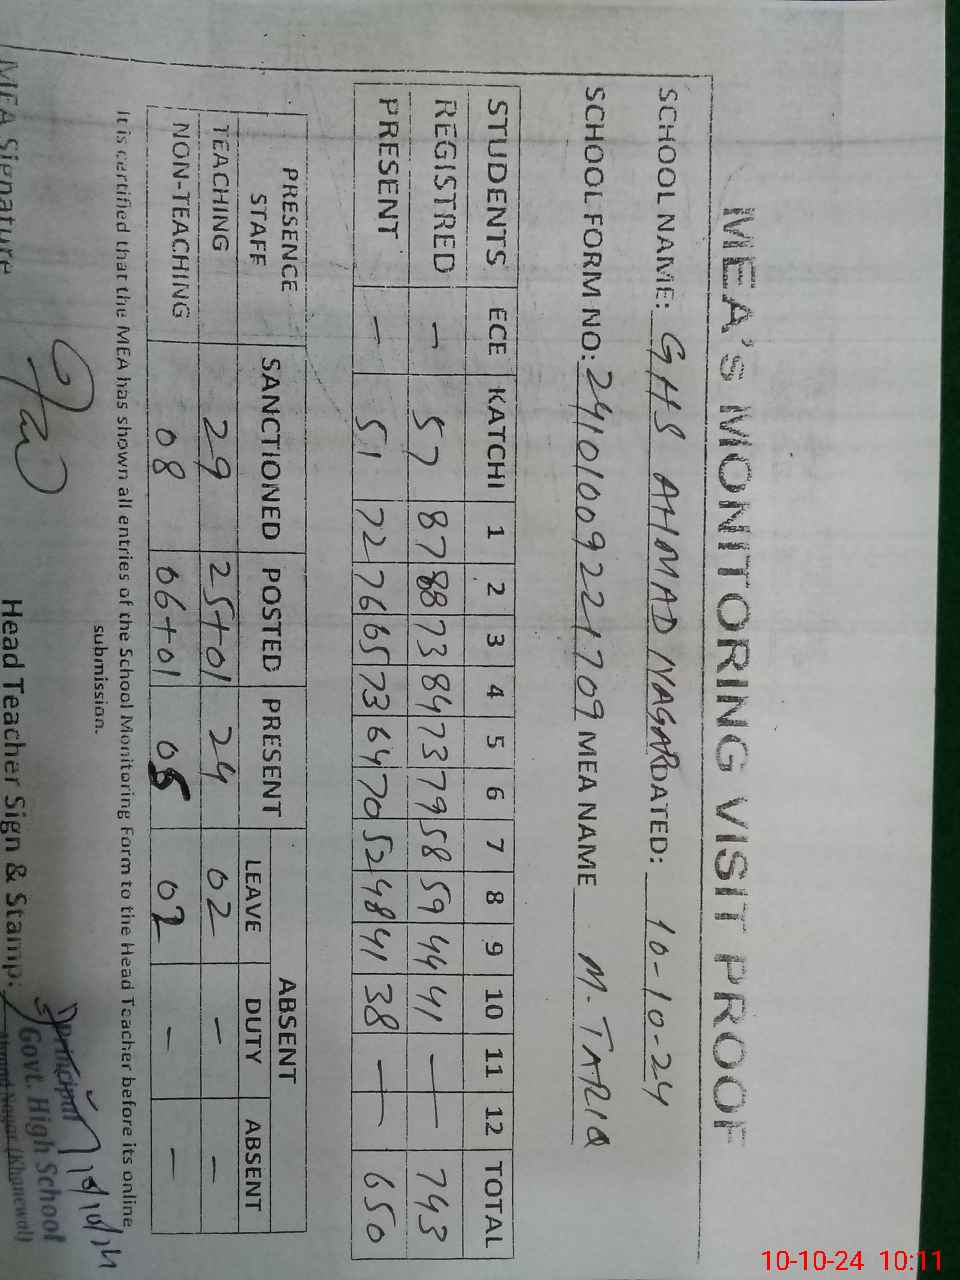 MEA's MONITORING VISIT PROOF
SCHOOL NAME: GHS AHMAD NAGAR DATED: 10-10-24
SCHOOL FORM NO: 24101009221709 MEA NAME M. TARIQ
STUDENTS ECE KATCHI 1 2 3 4 5 6 7 8 9 10 11 12 TOTAL
REGISTRED — 57 87 88 73 84 73 79 58 59 44 41 — 743
PRESENT — 51 72 76 65 73 64 70 52 48 41 38 — 650
PRESENCE STAFF SANCTIONED POSTED PRESENT ABSENT
LEAVE DUTY ABSENT
TEACHING 29 25+01 24 02 - -
NON-TEACHING 08 06+01 05 02 - -
It is certified that the MEA has shown all entries of the School Monitoring Form to the Head Teacher before its online
submission.
MEA Signature Head Teacher Sign & Stamp:
Principal 10/10/24
Govt. High School
Ahmad Nagar (Khanewal)
10-10-24 10:11